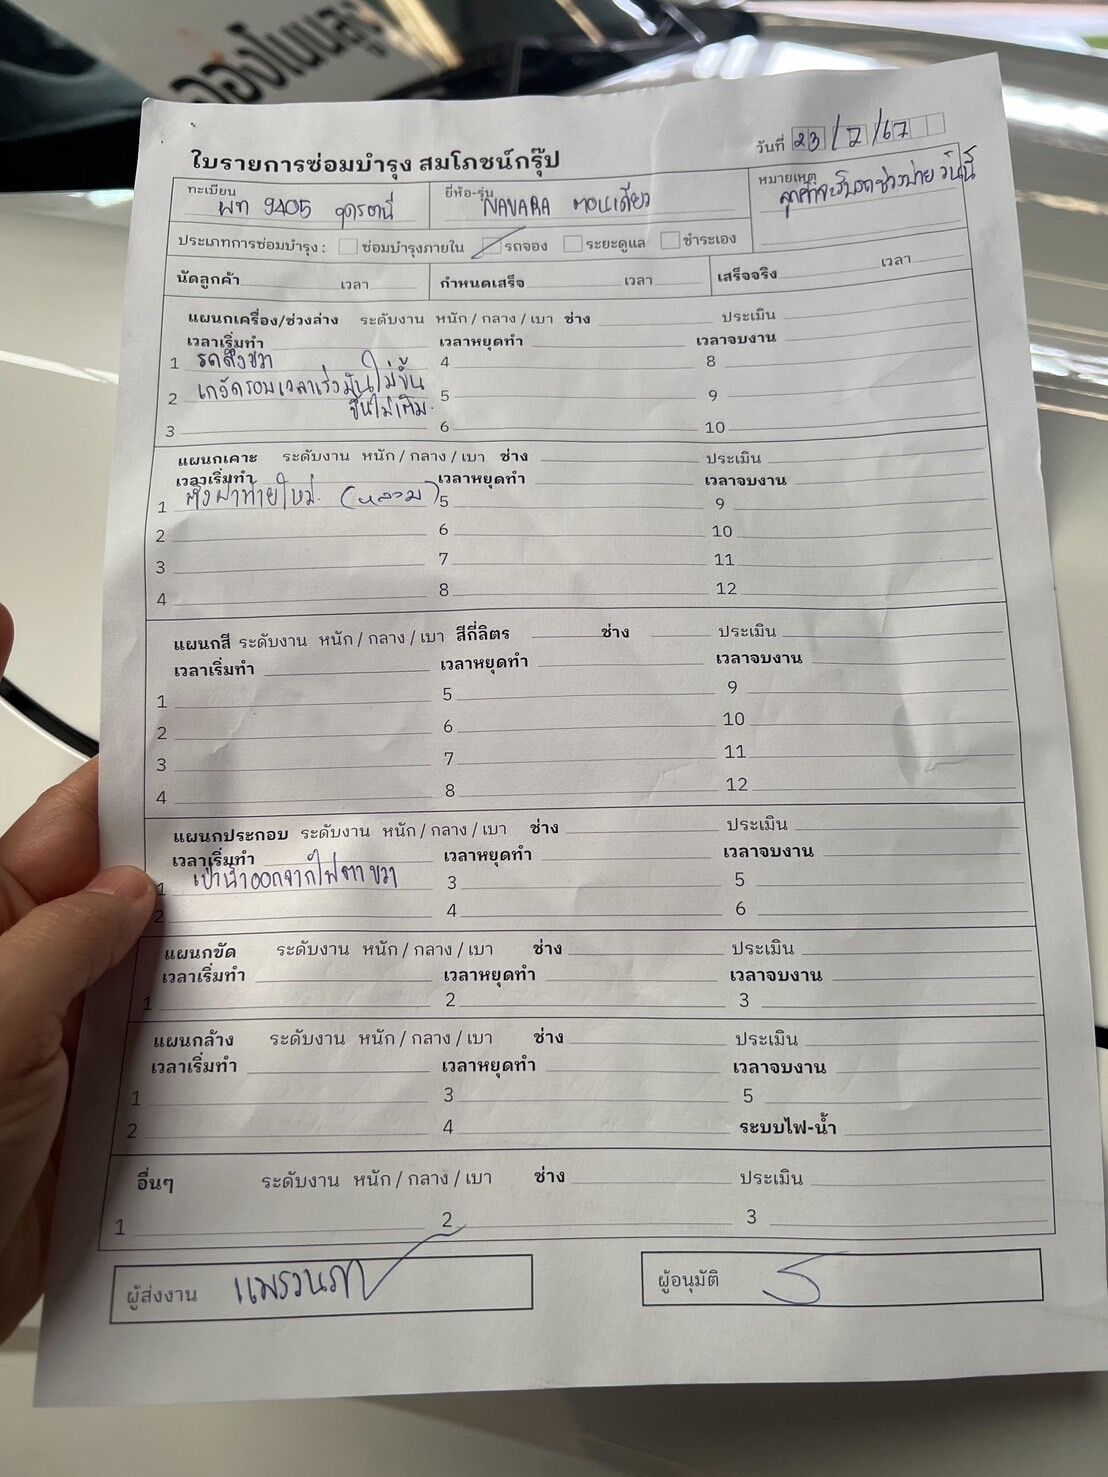 จองในนส
วันที่ 23/7/67
ใบรายการซ่อมบำรุง สมโภชน์กรุ๊ป
ทะเบียน ผท 9405 อุดรธานี ยี่ห้อ-รุ่น NAVARA ตอนเดียว หมายเหตุ ลูกค้าจะรับรถช่วงบ่ายวันนี้
ประเภทการซ่อมบำรุง : ซ่อมบำรุงภายใน รถจอง ระยะดูแล ชำระเอง
นัดลูกค้า เวลา กำหนดเสร็จ เวลา เสร็จจริง เวลา
แผนกเครื่อง/ช่วงล่าง ระดับงาน หนัก / กลาง / เบา ช่าง ประเมิน
เวลาเริ่มทำ เวลาหยุดทำ เวลาจบงาน
1 รถดึงขวา 4 8
2 เกจ์วัดรอบเวลาเร่งมันไม่ขึ้น 5 9
ขึ้นไม่เต็ม.
3 6 10
แผนกเคาะ ระดับงาน หนัก / กลาง / เบา ช่าง ประเมิน
เวลาเริ่มทำ เวลาหยุดทำ เวลาจบงาน
1 ตั้งฝาท้ายใหม่. (หลวม) 5 9
2 6 10
3 7 11
4 8 12
แผนกสี ระดับงาน หนัก / กลาง / เบา สีกี่ลิตร ช่าง ประเมิน
เวลาเริ่มทำ เวลาหยุดทำ เวลาจบงาน
1 5 9
2 6 10
3 7 11
4 8 12
แผนกประกอบ ระดับงาน หนัก / กลาง / เบา ช่าง ประเมิน
เวลาเริ่มทำ เวลาหยุดทำ เวลาจบงาน
1 เป่าน้ำออกจากไฟตาขวา 3 5
2 4 6
แผนกขัด ระดับงาน หนัก / กลาง / เบา ช่าง ประเมิน
เวลาเริ่มทำ เวลาหยุดทำ เวลาจบงาน
1 2 3
แผนกล้าง ระดับงาน หนัก / กลาง / เบา ช่าง ประเมิน
เวลาเริ่มทำ เวลาหยุดทำ เวลาจบงาน
1 3 5
2 4 ระบบไฟ-น้ำ
อื่นๆ ระดับงาน หนัก / กลาง / เบา ช่าง ประเมิน
1 2 3
ผู้ส่งงาน ผู้อนุมัติ